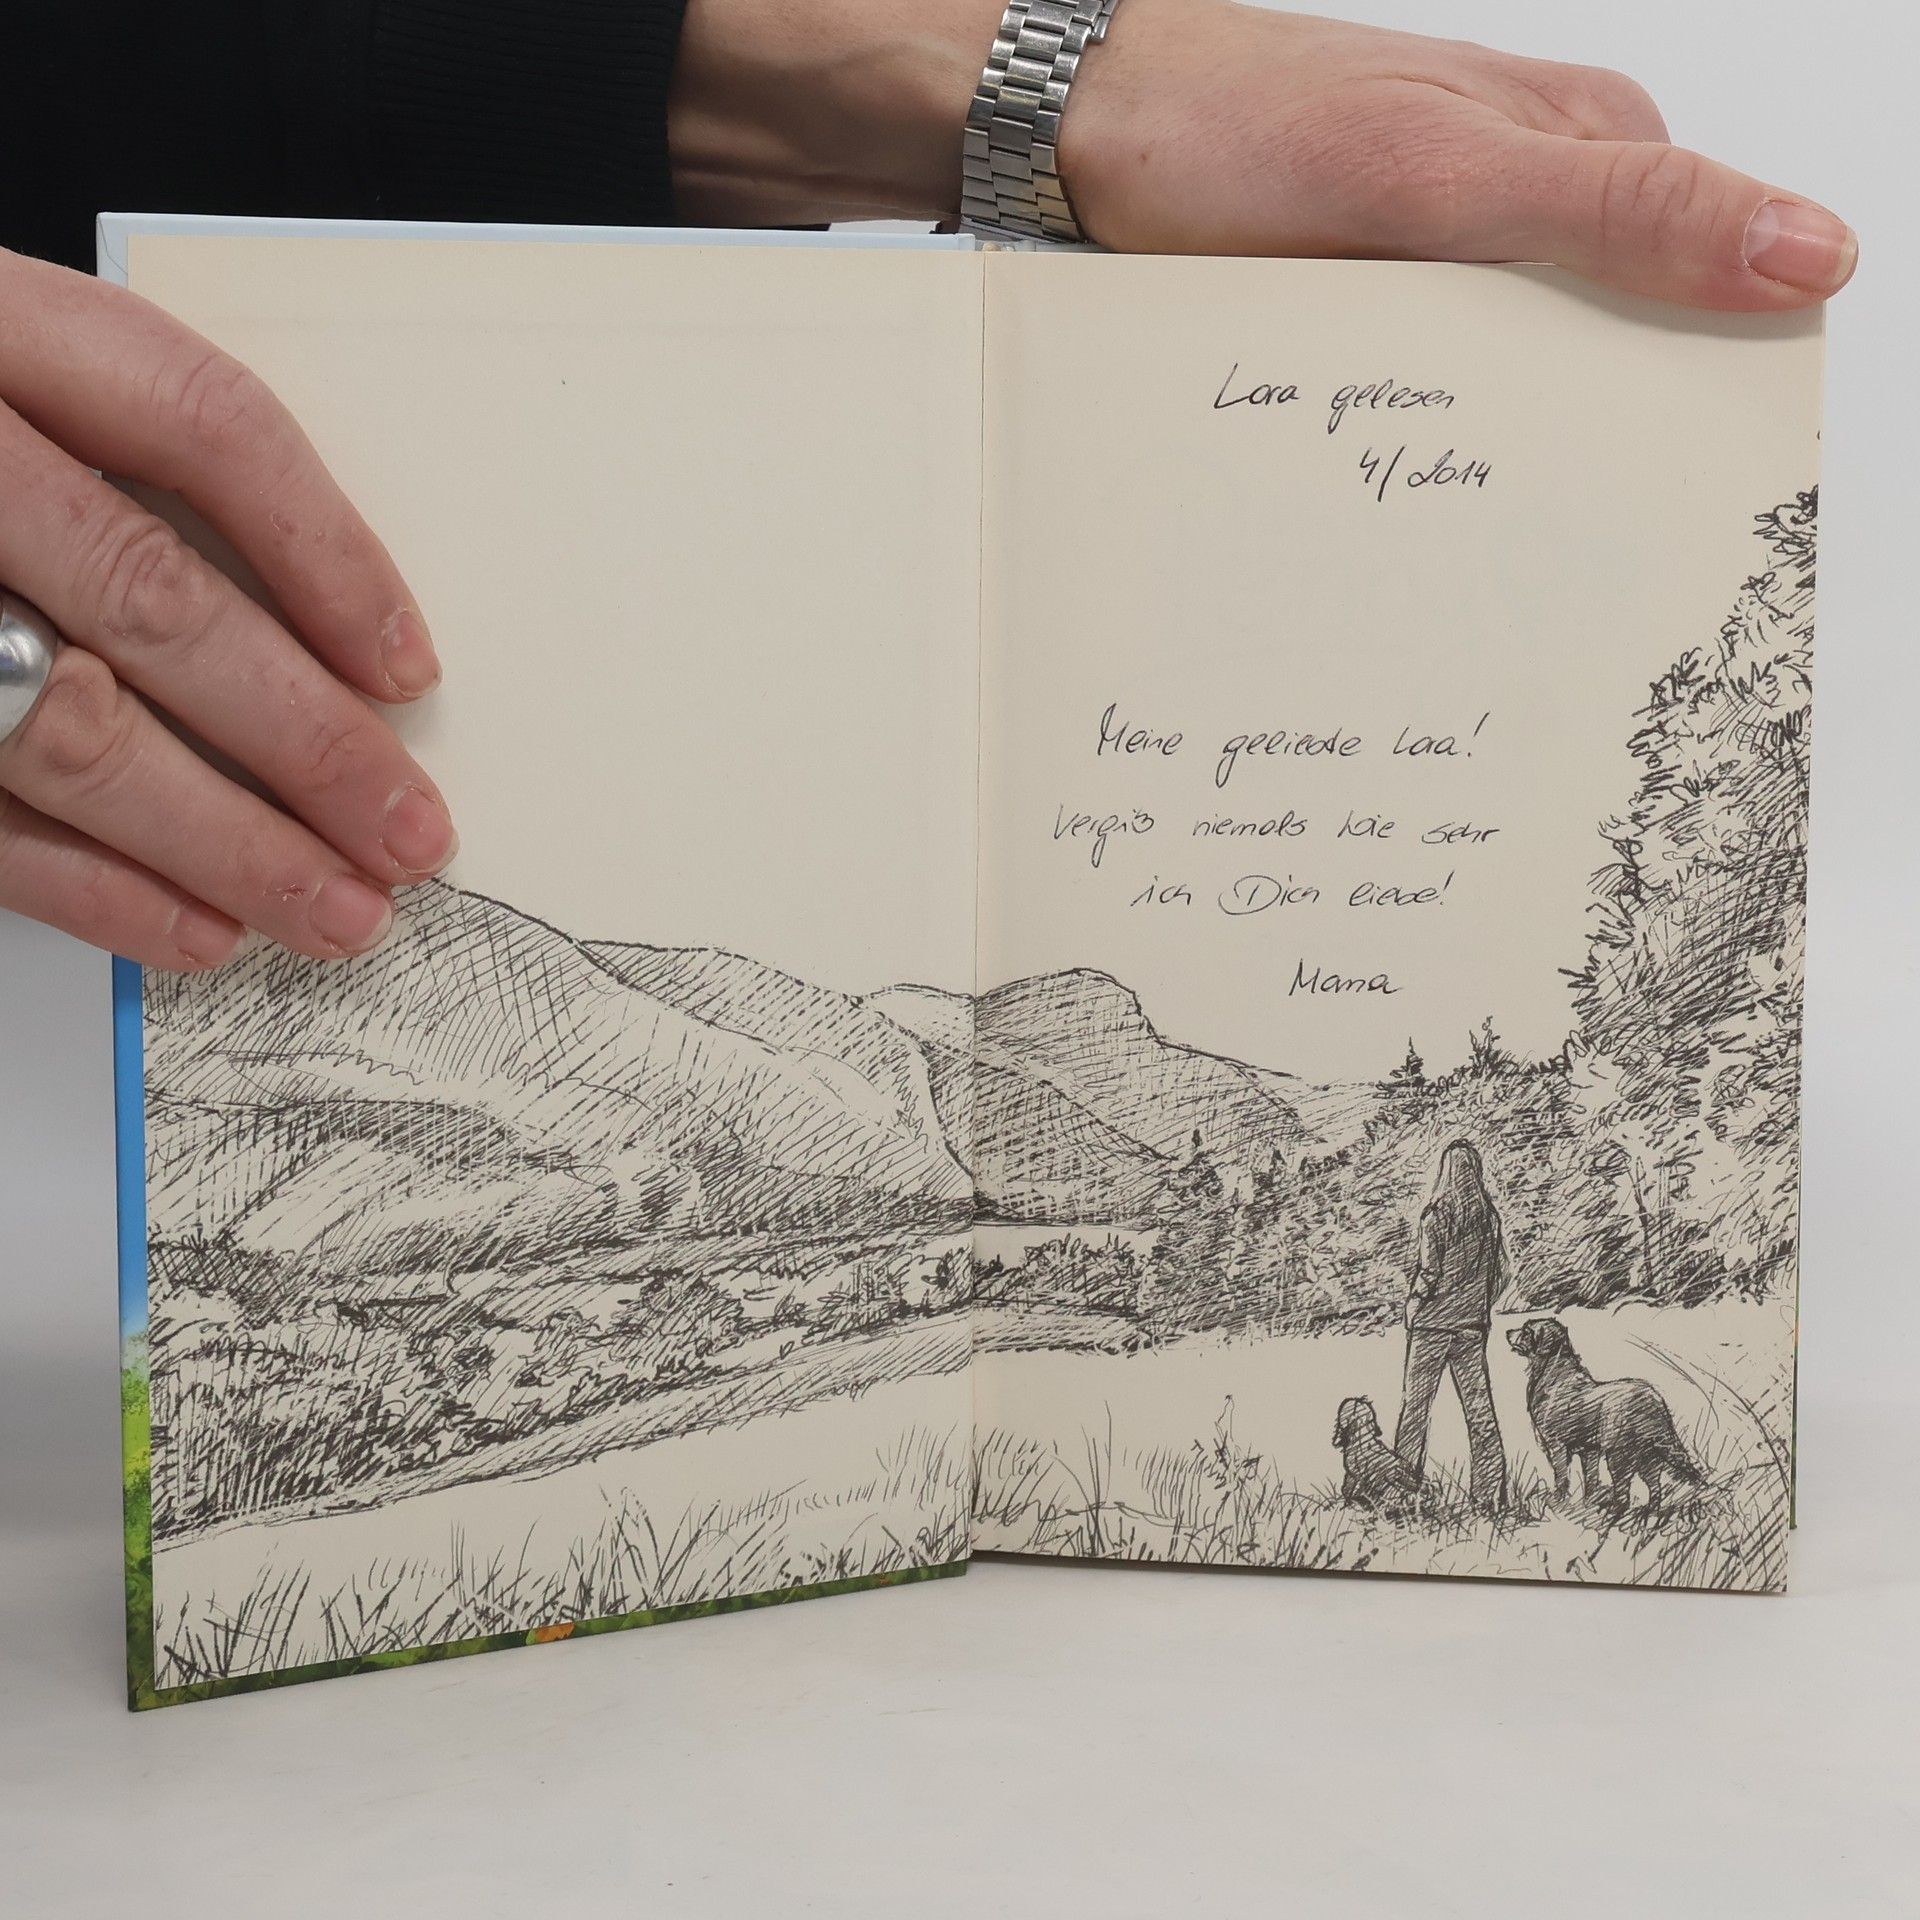 Lora gelesen
4/2014
Meine geliebte Lora!
Vergiß niemals wie sehr
ich Dich liebe!
Mama